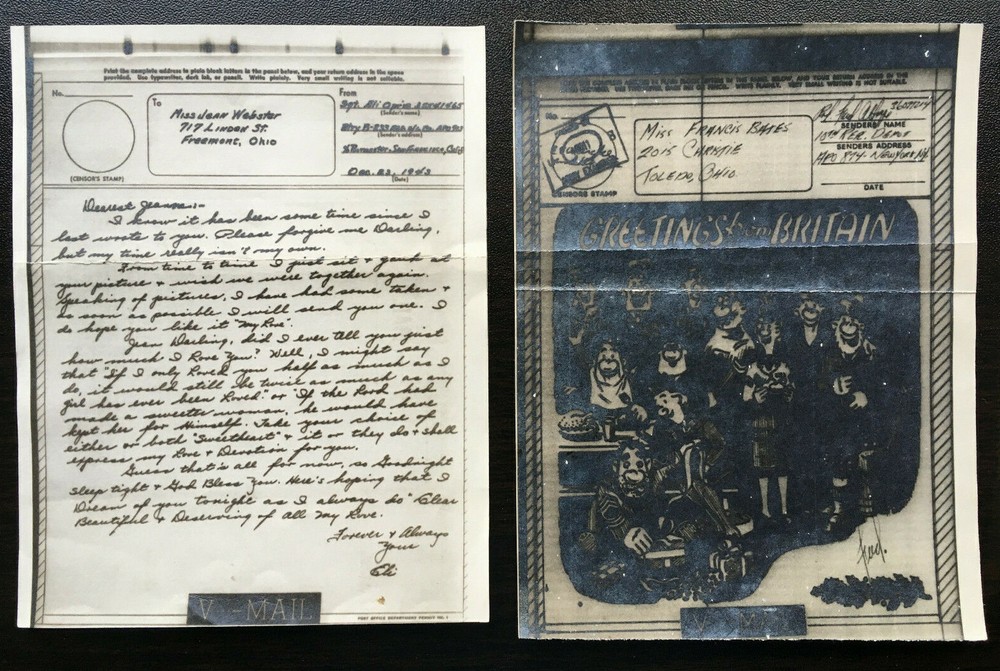 Print the complete address in plain block letters in the panel below, and your return address in the space
provided. Use typewriter, dark ink, or pencil. Write plainly. Very small writing is not suitable.
No.
To
Miss Jean Webster
717 Linden St.
Freemont, Ohio
(CENSOR'S STAMP)
From
Sgt. Eli
(Sender's name)
Btry. B-
(Sender's address)
% Pmaster - San Francisco, Calif
Dec. 23, 1943
(Date)
Dearest Jeanne:-
I know it has been some time since I
last wrote to you. Please forgive me Darling,
but my time really isn't my own.
From time to time I just sit & gawk at
your picture & wish we were together again.
Speaking of pictures, I have had some taken &
as soon as possible I will send you one. I
do hope you like it "My Love".
Jean Darling, did I ever tell you just
how much I Love You? Well, I might say
that "If I only Loved you half as much as I
do, it would still be twice as much as any
girl has ever been Loved" or "If the Lord had
made a sweeter woman, he would have
kept her for Himself. Take your choice of
either or both "Sweetheart" & it or they do & shall
express my Love & Devotion for you.
Guess that's all for now, so Goodnight
Sleep tight & God Bless You. Here's hoping that I
Dream of you tonight as I always do
Beautiful & Deserving of all My Love.
Forever & Always
Your
Eli
V-MAIL
POST OFFICE DEPARTMENT PERMIT NO. 1
No.
CENSORS STAMP
Miss Francis Bates
2015 Christie
Toledo, Ohio.
36077214
SENDERS NAME
10th Rep. Depot
SENDERS ADDRESS
APO 874 - New York, NY.
DATE
GREETINGS from BRITAIN
Fred.
V-MAIL